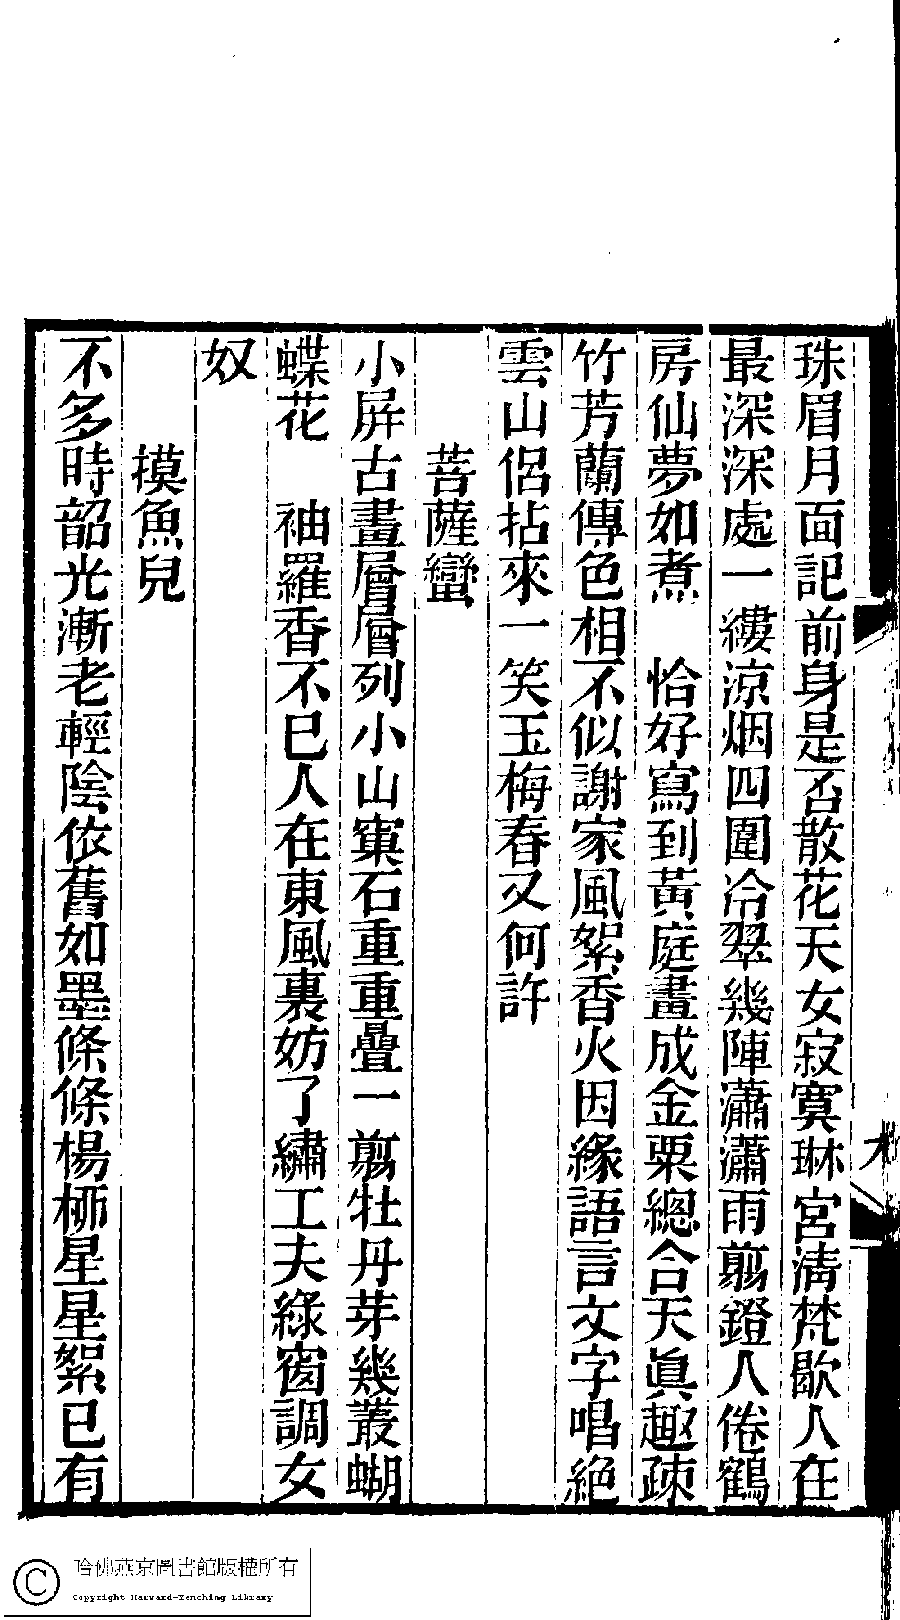 珠眉月面記前身是否散花天女寂寞琳宮淸梵歇人在
最深深處一縷涼烟四圍冷翠幾陣瀟瀟雨剪鐙人倦鶴
房仙夢如煮　恰好寫到黃庭畫成金粟總合天眞趣疎
竹芳蘭傳色相不似謝家風絮香火因緣語言文字唱絕
雲山侶拈來一笑玉梅春又何許
菩薩蠻
小屛古畫層層列小山窠石重重疊一剪牡丹芽幾叢蝴
蝶花　袖羅香不已人在東風裏妨了繡工夫綠窗調女
奴
摸魚兒
不多時韶光漸老輕陰依舊如墨條條楊柳星星絮已有
哈佛燕京圖書館版權所有
Copyright Harvard-Yenching Library